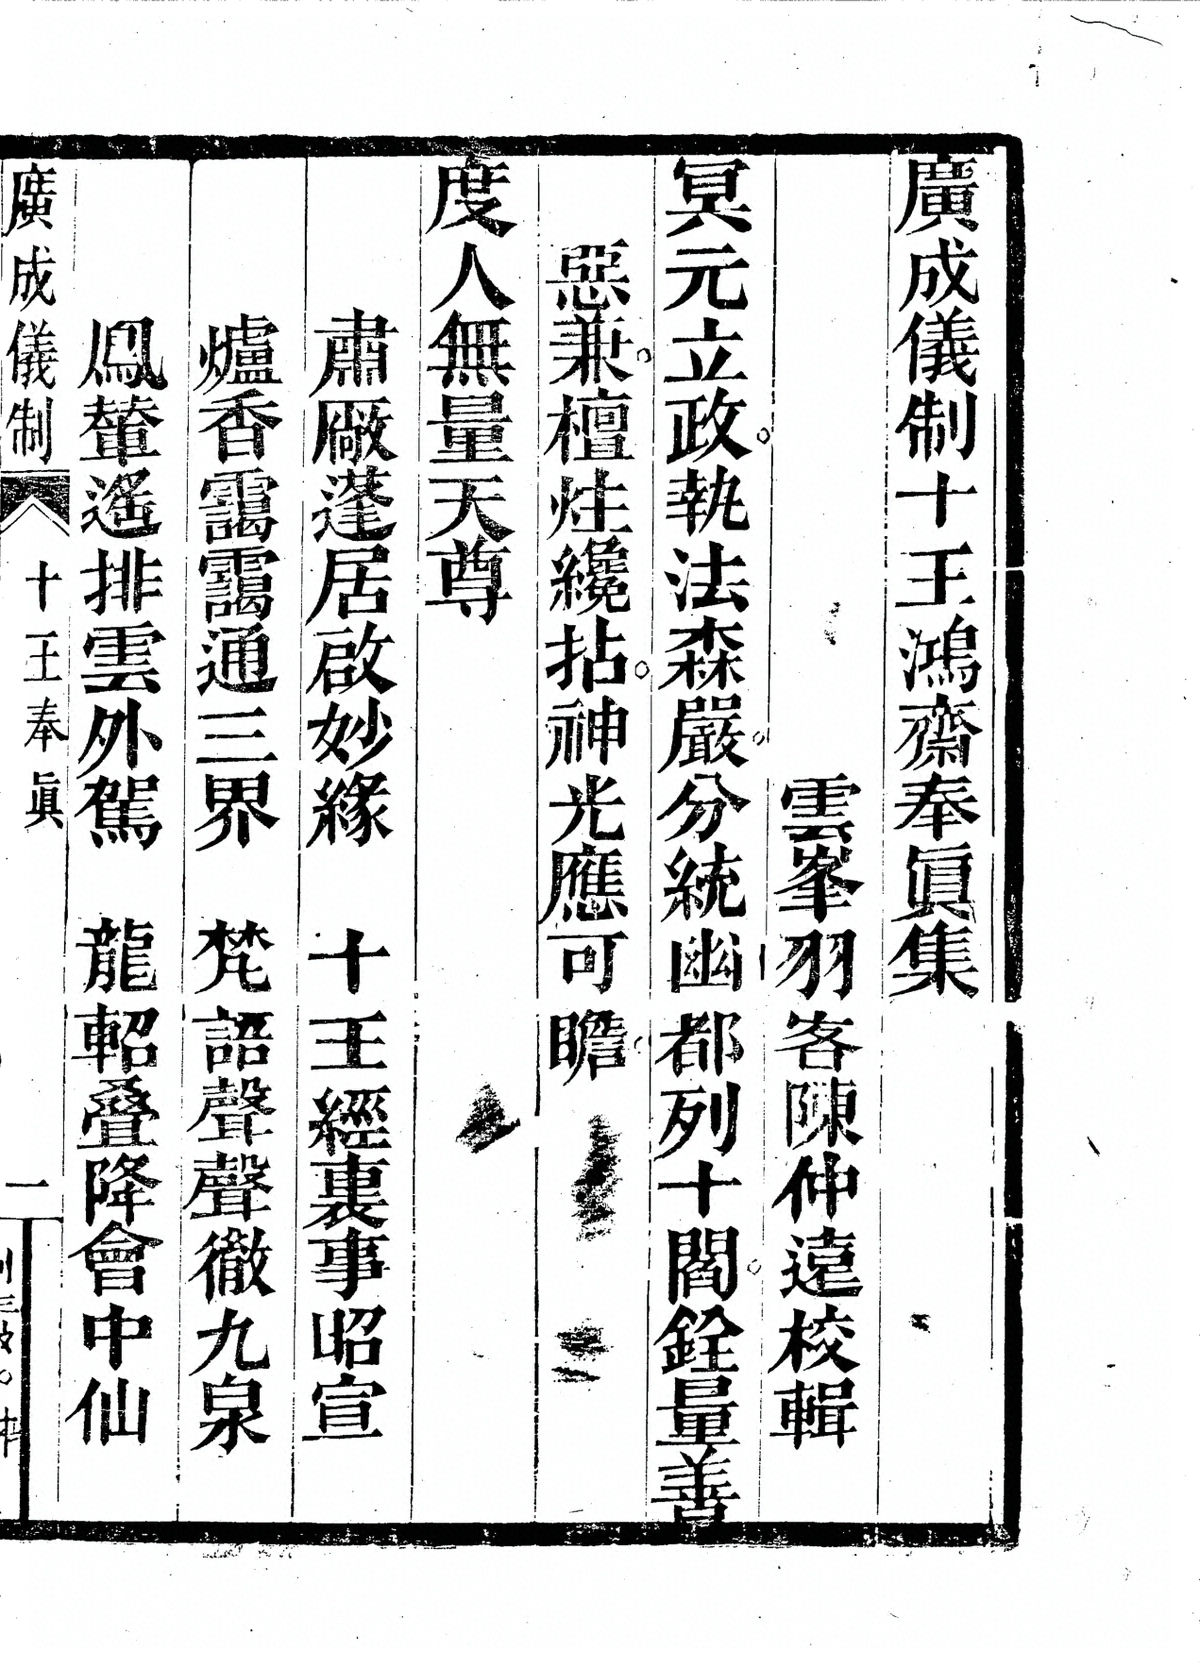 廣成儀制十王鴻齋奉眞集
雲峯羽客陳仲遠校輯
冥元立政執法森嚴分統幽都列十閻銓量善
惡兼檀炷纔拈神光應可瞻
度人無量天尊
肅厰蓬居啟妙緣　十王經裏事昭宣
爐香靄靄通三界　梵語聲聲徹九泉
鳳輦遙排雲外駕　龍軺叠降會中仙
廣成儀制
十王奉眞
一